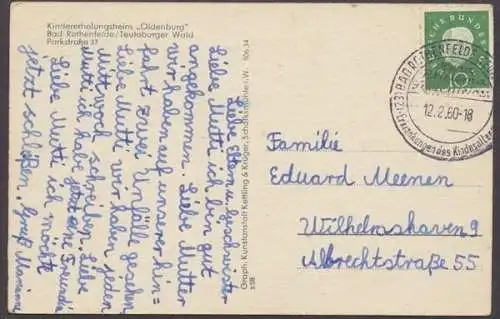 Kindererholungsheim „Oldenburg"
Bad Rothenfelde/Teutoburger Wald
Parkstraße 37
Liebe Eltern u. Gschwister
Liebe Mutti ich bin gut
angekommen. Liebe Mutter
wir haben auf unserer hin=
fahrt zwei Unfälle gesehen
Liebe Mutti wir haben jeden
Mittwoch schreiben. Liebe
Mutti ich habe jetzt eine Freundin
Liebe Mutti ich möchte
jetzt schließen. Gruß Marianne
Graph. Kunstanstalt Kettling & Krüger, Schalksmühle i. W. 506 34
(23) BAD ROTHENFELDE
12.2.60-18
Erkrankungen des Kindesalters
10
Familie
Eduard Meenen
Wilhelmshaven 9
Albrechtstraße 55